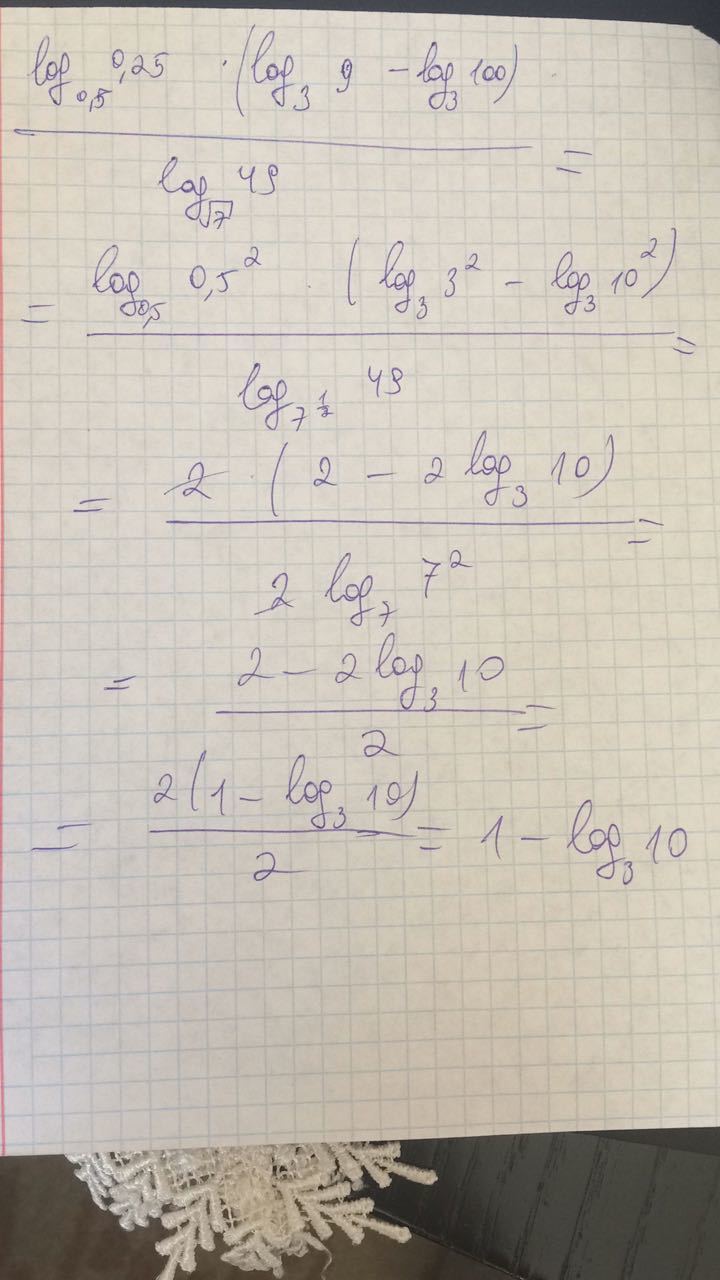 log₀,₅ 0,25 · (log₃ 9 − log₃ 100)
log_√7 49 =
= log₀,₅ 0,5² · (log₃ 3² − log₃ 10²)
log_7^½ 49 =
= 2 · (2 − 2 log₃ 10)
2 log₇ 7² =
= 2 − 2 log₃ 10
2 =
= 2(1 − log₃ 10)
2 = 1 − log₃ 10